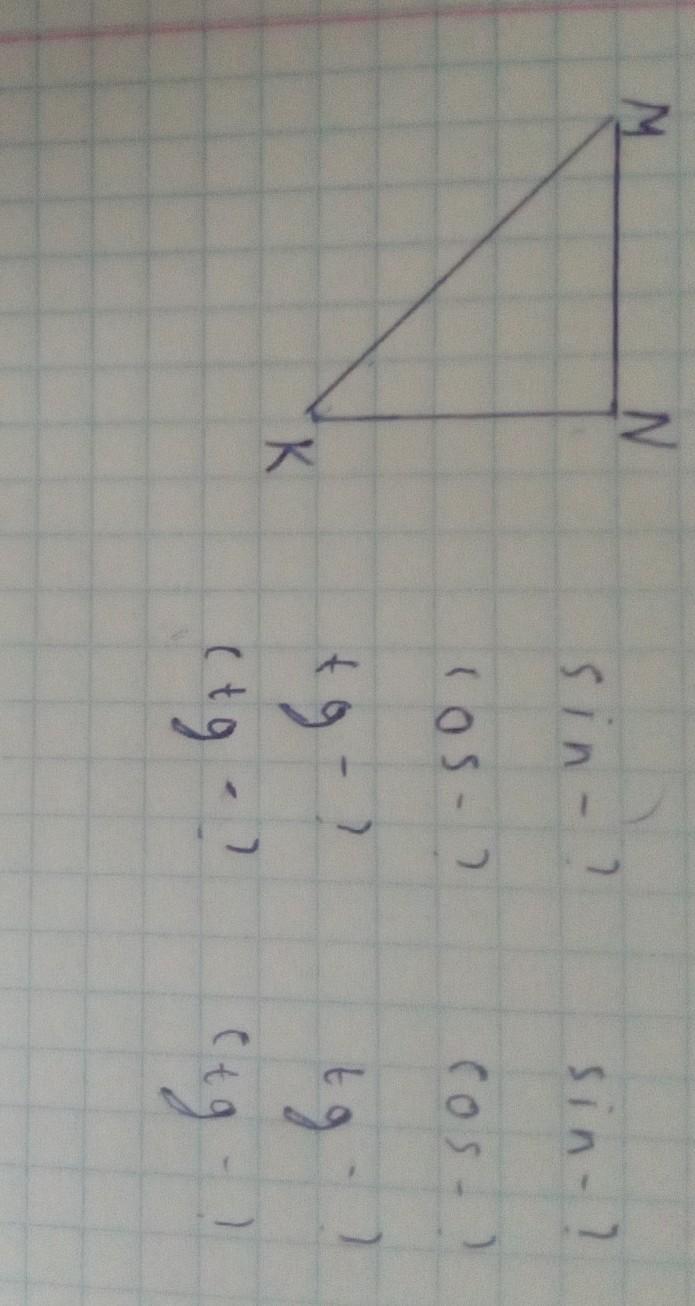 M
N
K
sin - ?
cos - ?
tg - ?
ctg - ?
sin - ?
cos - ?
tg - ?
ctg - ?